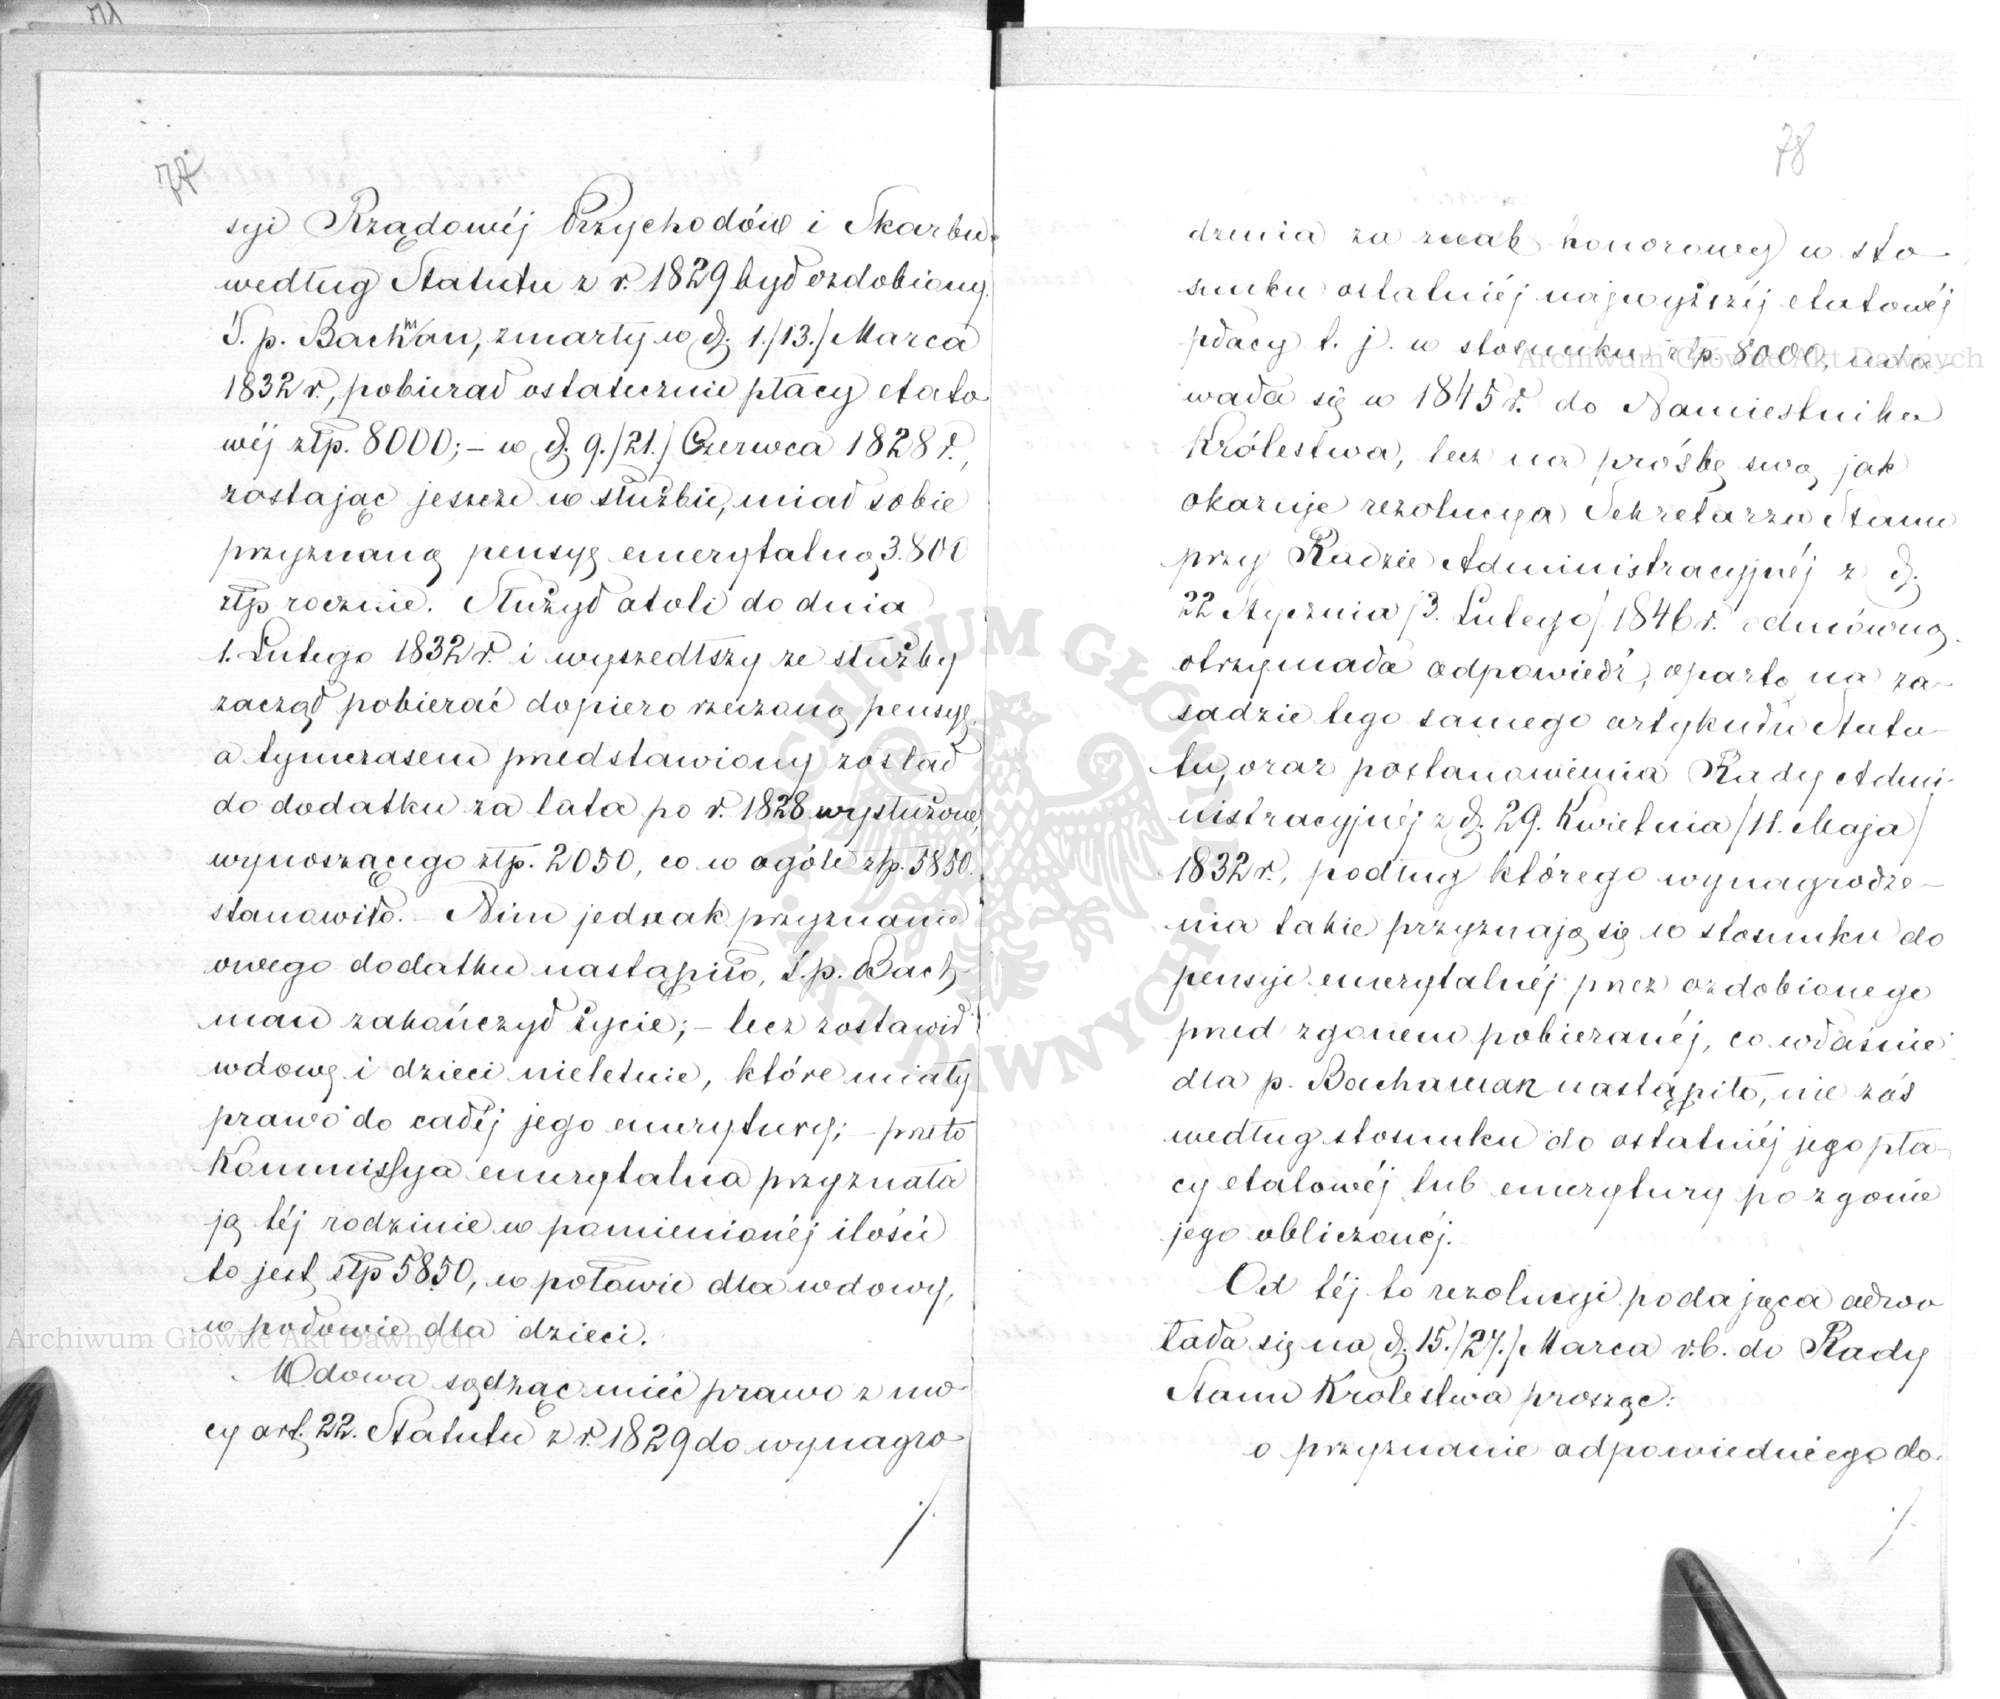 77.
syi Rządowéj Przychodów i Skarbu
według Statutu z r. 1829 był ozdobiony.
Ś. p. Bachman, zmarły w d. 1./13./ Marca
1832 r., pobierał ostatecznie płacy etato
wéj złp. 8000; – w d. 9./21./ Czerwca 1828 r.,
zostając jeszcze w służbie, miał sobie
przyznaną pensyę emerytalną 3.800
złp rocznie. Służył atoli do dnia
1. Lutego 1832 r. i wyszedłszy ze służby
zaczął pobierać dopiero rzeczoną pensyę,
a tymczasem przedstawiony został
do dodatku za lata po r. 1828 wysłużone,
wynoszącego złp. 2050, co w ogóle złp. 5850.
stanowiło. – Nim jednak przyznanie
owego dodatku nastąpiło, ś. p. Bach-
man zakończył życie; – lecz zostawił
wdowę i dzieci nieletnie, które miały
prawo do całéj jego emerytury; – przeto
Kommissya emerytalna przyznała
ją téj rodzinie w pomienionéj ilości
to jest złp 5850, w połowie dla wdowy,
w połowie dla dzieci.
Wdowa sądząc mieć prawo z mo-
cy art. 22. Statutu z r. 1829 do wynagro-
./.
78
dzenia za znak honorowy w sto-
sunku ostatniéj najwyższéj etatowéj
płacy t. j. w stosunku złp. 8000, uda-
wała się w 1845 r. do Namiestnika
Królestwa, lecz na prośbę swą, jak
okazuje rezolucya Sekretarza Stanu
przy Radzie Administracyjnéj z d.
22 Stycznia /3. Lutego/ 1846 r. odmówną
otrzymała odpowiedź, opartą na za-
sadzie tego samego artykułu Statu-
tu, oraz postanowienia Rady Admi-
nistracyjnéj z d. 29. Kwietnia /11. Maja/
1832 r., podług którego wynagrodze-
nia takie przyznają się w stosunku do
pensyi emerytalnéj przez ozdobionego
przed zgonem pobieranéj, co właśnie
dla p. Bachman nastąpiło, nie zaś
według stosunku do ostatniéj jego pła-
cy etatowéj lub emerytury po zgonie
jego obliczonéj.
Od téj to rezolucyi podająca odwo
łała się na d. 15./27./ Marca r. b. do Rady
Stanu Królestwa prosząc:
o przyznanie odpowiedniego do-
./.
Archiwum Główne Akt Dawnych
Archiwum Główne Akt Dawnych
ARCHIWUM GŁÓWNE AKT DAWNYCH